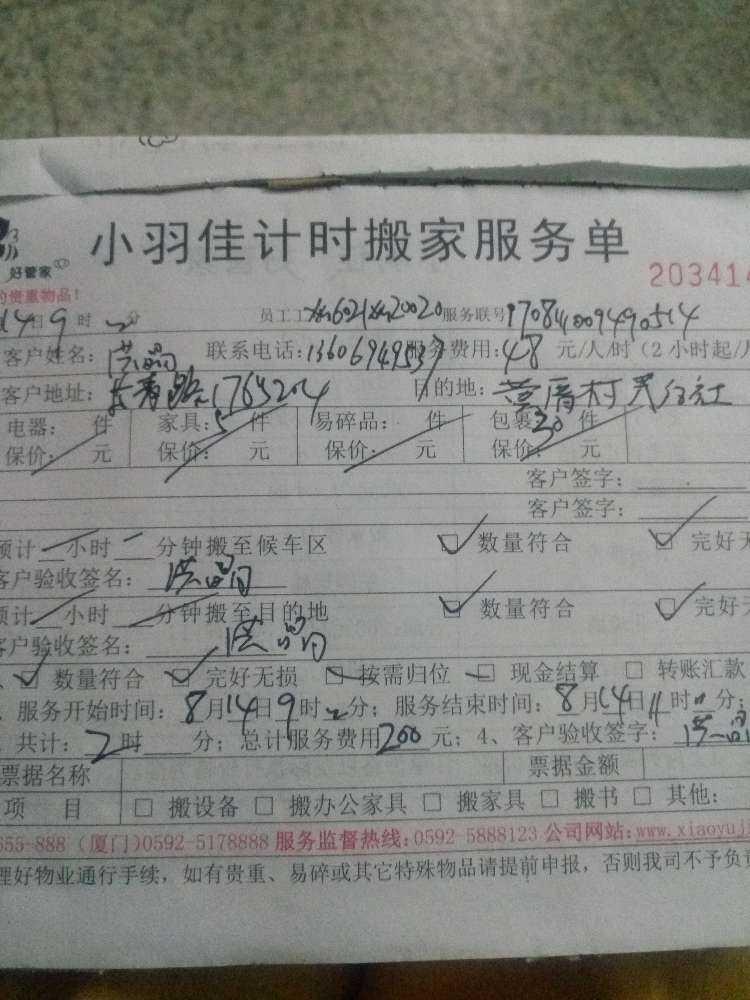 小羽佳计时搬家服务单
好管家
203414
的贵重物品！
14日9时 分 员工工 6021 20020 服务联号 170814009490514
客户姓名：洪 联系电话：136069495 服务费用：48 元/人/时（2小时起/人
客户地址：长青路176 204 目的地：村
电器： 件 家具：5件 易碎品： 件 包裹30件
保价： 元 保价： 元 保价： 元 保价： 元
客户签字：
客户签字：
预计 小时 分钟搬至候车区 ☑ 数量符合 ☑ 完好无
客户验收签名：洪
预计 小时 分钟搬至目的地 ☑ 数量符合 ☑ 完好无
客户验收签名：洪
☑ 数量符合 ☑ 完好无损 按需归位 现金结算 □ 转账汇款
服务开始时间：8月14日9时 分；服务结束时间：8月14日11时 分；
共计：2时 分；总计服务费用200元；4、客户验收签字：洪
票据名称 票据金额
项 目 □ 搬设备 □ 搬办公家具 □ 搬家具 □ 搬书 □ 其他：
655-888（厦门)0592-5178888 服务监督热线：0592-5888123 公司网站：www.xiaoyuj
理好物业通行手续，如有贵重、易碎或其它特殊物品请提前申报，否则我司不予负